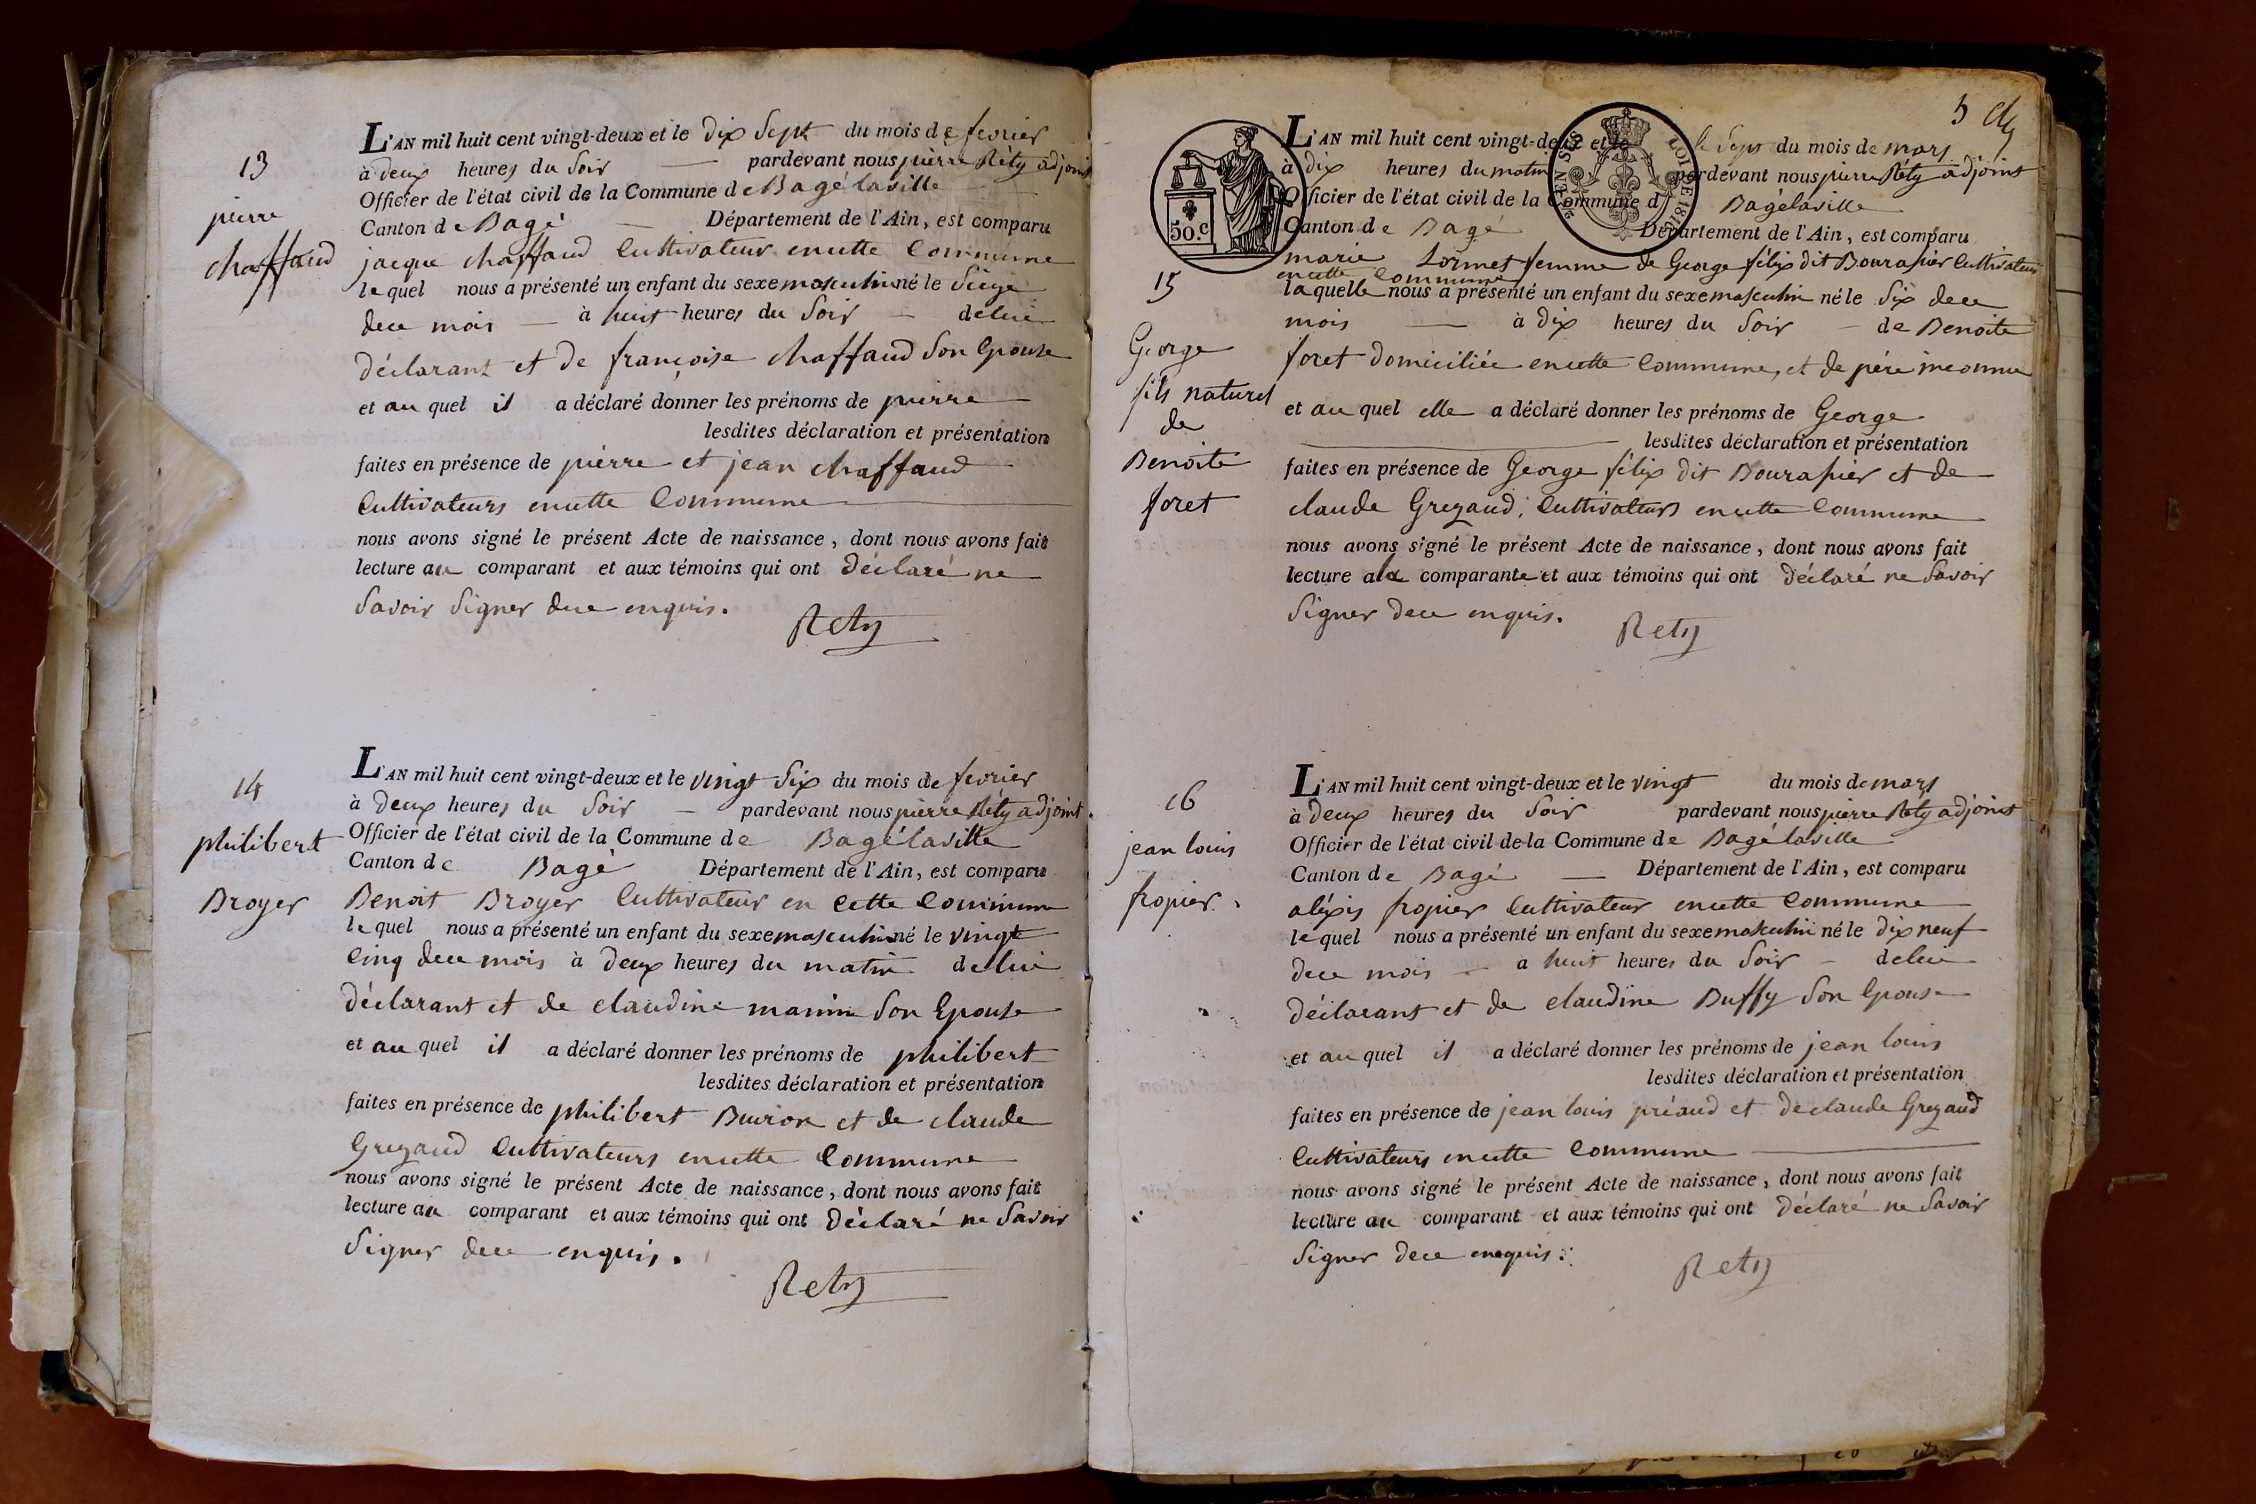 13
pierre
chaffaud
L'AN mil huit cent vingt-deux et le dix Sept du mois de fevrier
à deux heures du Soir pardevant nous pierre Réty adjoint
Officier de l'état civil de la Commune de Bagélaville
Canton de Bagé Département de l'Ain, est comparu
jacque chaffaud Cultivateur encette Commune
lequel nous a présenté un enfant du sexe masculin né le Siège
dece mois à huit heures du Soir delui
déclarant et de françoise chaffaud Son Epouse
et au quel il a déclaré donner les prénoms de pierre
lesdites déclaration et présentation
faites en présence de pierre et jean chaffaud
Cultivateurs encette Commune
nous avons signé le présent Acte de naissance, dont nous avons fait
lecture au comparant et aux témoins qui ont déclaré ne
Savoir Signer dece enquis.
Rety
14
philibert
Broyer
L'AN mil huit cent vingt-deux et le vingt Six du mois de fevrier
à deux heures du Soir pardevant nous pierre Réty adjoint
Officier de l'état civil de la Commune de Bagélaville
Canton de Bagé Département de l'Ain, est comparu
Benoit Broyer Cultivateur en cette Commune
lequel nous a présenté un enfant du sexe masculin né le vingt
Cinq dece mois à deux heures du matin delui
déclarant et de claudine manin Son Epouse
et au quel il a déclaré donner les prénoms de philibert
lesdites déclaration et présentation
faites en présence de philibert Buiron et de claude
Gregaud Cultivateurs encette Commune
nous avons signé le présent Acte de naissance, dont nous avons fait
lecture au comparant et aux témoins qui ont déclaré ne Savoir
Signer dece enquis.
Rety
5
50.c
EN SUS
LOI DE 1816
15
George
fils naturel
de
Benoite
foret
L'AN mil huit cent vingt-deux et le le Sept du mois de mars
à dix heures du matin pardevant nous pierre Réty adjoint
Officier de l'état civil de la Commune d Bagélaville
Canton de Bagé Département de l'Ain, est comparu
marie Lormet femme de George félix dit Bourasier Cultivateur
encette Commune
laquelle nous a présenté un enfant du sexe masculin né le Six dece
mois à dix heures du Soir de Benoite
foret domiciliée encette Commune, et de pére inconnu
et au quel elle a déclaré donner les prénoms de George
lesdites déclaration et présentation
faites en présence de George félix dit Bourasier et de
claude Gregaud, Cultivateurs encette Commune
nous avons signé le présent Acte de naissance, dont nous avons fait
lecture ala comparante et aux témoins qui ont déclaré ne Savoir
Signer dece enquis.
Rety
16
jean louis
fropier
L'AN mil huit cent vingt-deux et le vingt du mois de mars
à deux heures du Soir pardevant nous pierre Réty adjoint
Officier de l'état civil de la Commune de Bagélaville
Canton de Bagé Département de l'Ain, est comparu
aléxis fropier Cultivateur encette Commune
lequel nous a présenté un enfant du sexe masculin né le dix neuf
dece mois a huit heures du Soir delui
déclarant et de claudine Buffy Son Epouse
et au quel il a déclaré donner les prénoms de jean louis
lesdites déclaration et présentation
faites en présence de jean louis préaud et declaude Gregaud
Cultivateurs encette Commune
nous avons signé le présent Acte de naissance, dont nous avons fait
lecture au comparant et aux témoins qui ont déclaré ne Savoir
Signer dece enquis.
Rety